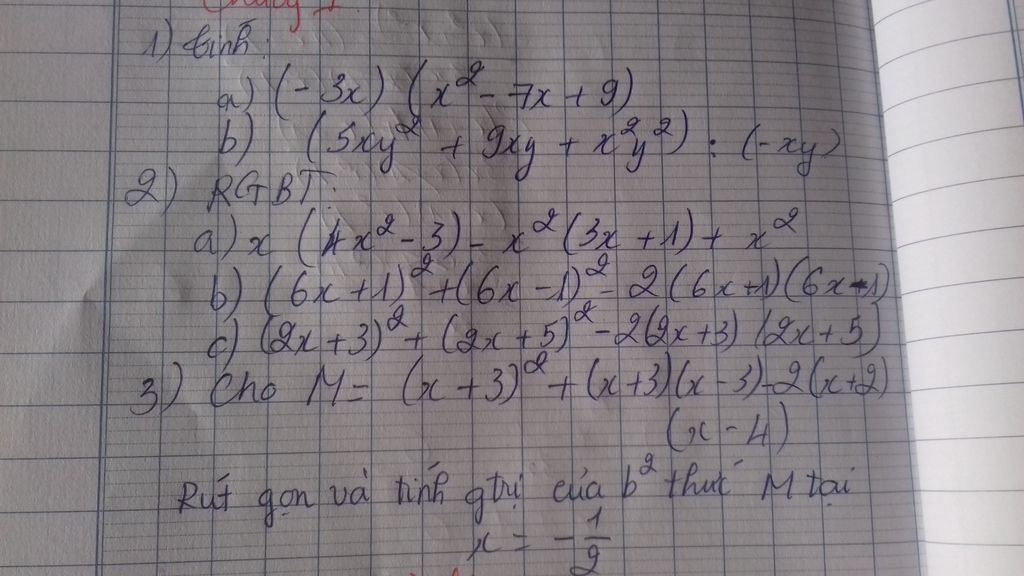 1) tính:
a) (-3x) (x² - 7x + 9)
b) (5xy² + 9xy + x²y²) : (-xy)
2) RGBT:
a) x (4x² - 3) - x² (3x + 1) + x²
b) (6x + 1)² + (6x - 1)² - 2 (6x+1) (6x-1)
c) (2x + 3)² + (2x + 5)² - 2(2x+3) (2x + 5)
3) Cho M = (x + 3)² + (x+3)(x-3) - 2(x+2)
(x - 4)
Rút gọn và tính gtrị của b² thức M tại
x = -1/2